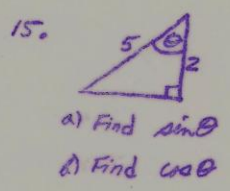 15.
5 θ
2
a) Find sinθ
b) Find cosθ